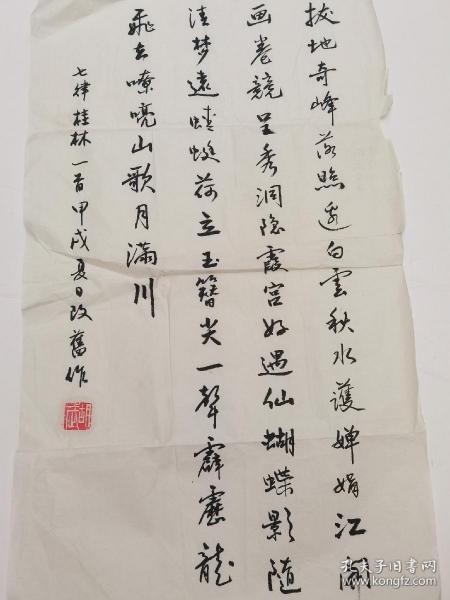 拔地奇峰落照边白雲秋水護婵娟江開
画卷競呈秀洞隐霞宫好遇仙蝴蝶影随
清梦遠蜻蜓荷立玉簪尖一聲霹靂龍
飛去嘹亮山歌月滿川
七律桂林一首甲戌夏日改舊作
孔夫子旧书网
kongfz.com